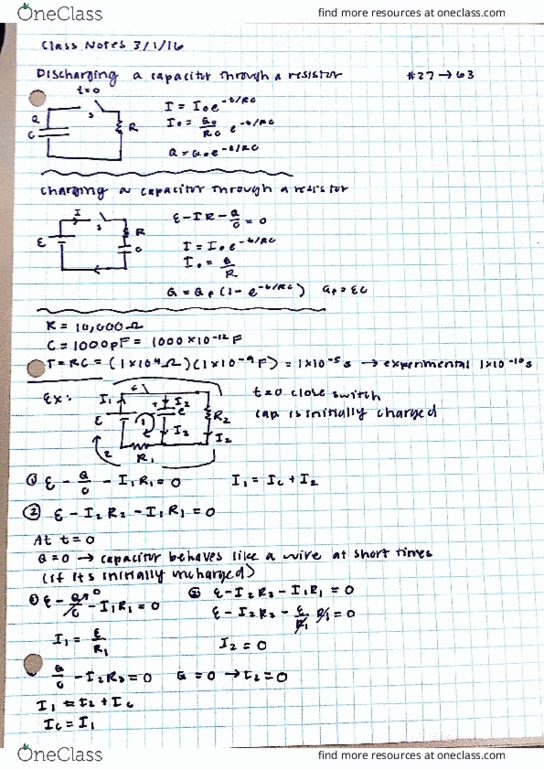 OneClass
find more resources at oneclass.com
Class Notes 3/1/16
Discharging a capacitor through a resistor #27→63
t=0
Q
C
S
R
I = I₀e^-t/RC
I₀ = Q₀/RC e^-t/RC
Q = Q₀e^-t/RC
Charging a capacitor through a resistor
I
S
ε
R
C
ε-IR-Q/C=0
I = I₀e^-t/RC
I₀ = ε/R
Q = Q_f(1-e^-t/RC) Q_f = εC
R = 10,000Ω
C = 1000pF = 1000×10^-12 F
T=RC = (1×10⁴Ω)(1×10^-9F) = 1×10^-5s → experimental 1×10^-10s
Ex:
I₁
ε
C
1
2
R₁
R₂
I₂
t=0 close switch
cap is initially charged
① ε - Q/C - I₁R₁=0 I₁ = Ic + I₂
② ε - I₂R₂ - I₁R₁ = 0
At t=0
Q=0 → capacitor behaves like a wire at short times
(if its initially uncharged)
① ε - Q/C⁰ - I₁R₁=0 ② ε-I₂R₂-I₁R₁ = 0
ε-I₂R₂-ε/R₁ R₁=0
I₁ = ε/R₁ I₂ = 0
Q/C - I₂R₂=0 Q=0 → I₂=0
I₁ = I₂ + Ic
Ic = I₁
OneClass
find more resources at oneclass.com